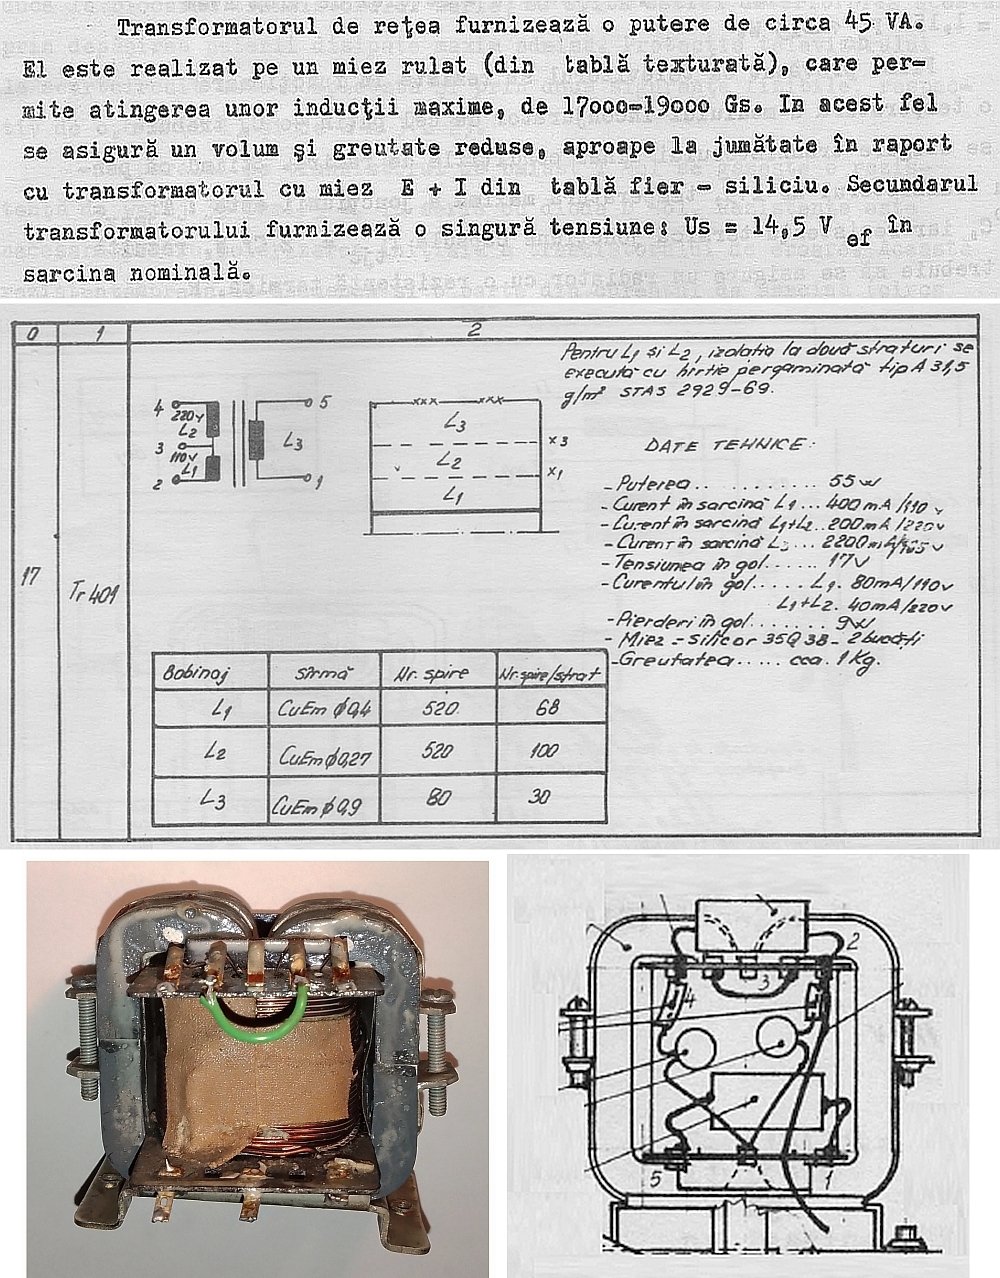 Transformatorul de reţea furnizează o putere de circa 45 VA.
El este realizat pe un miez rulat (din tablă texturată), care per-
mite atingerea unor inducţii maxime, de 17000-19000 Gs. In acest fel
se asigură un volum şi greutate reduse, aproape la jumătate în raport
cu transformatorul cu miez E + I din tablă fier - siliciu. Secundarul
transformatorului furnizează o singură tensiune: Us = 14,5 V ef în
sarcina nominală.
0 1 2
Pentru L1 şi L2, izolaţia la două straturi se
execută cu hîrtie pergaminată tip A 31,5
g/m² STAS 2929-69.
4 220V L2
3 110V L1
2
5
L3
1
xxx xxx
L3
x3
L2
x1
L1
DATE TEHNICE:
- Puterea .. .......... 55w
- Curent în sarcină L1 ... 400mA/110v
- Curent în sarcină L1+L2 .. 200mA/220v
- Curent în sarcină L3 ... 2200mA/
- Tensiunea în gol ...... 17V
- Curentul în gol ..... L1. 80mA/110v
L1+L2. 40mA/220v
- Pierderi în gol ........ 9W
- Miez = Silicor 35Q38 - 2 bucăţi
- Greutatea ..... cca. 1 Kg.
17 Tr 401
Bobinaj Sîrmă Nr. spire Nr. spire/strat
L1 CuEm φ0,4 520 68
L2 CuEm φ0,27 520 100
L3 CuEm φ0,9 80 30
2
3
4
5
1